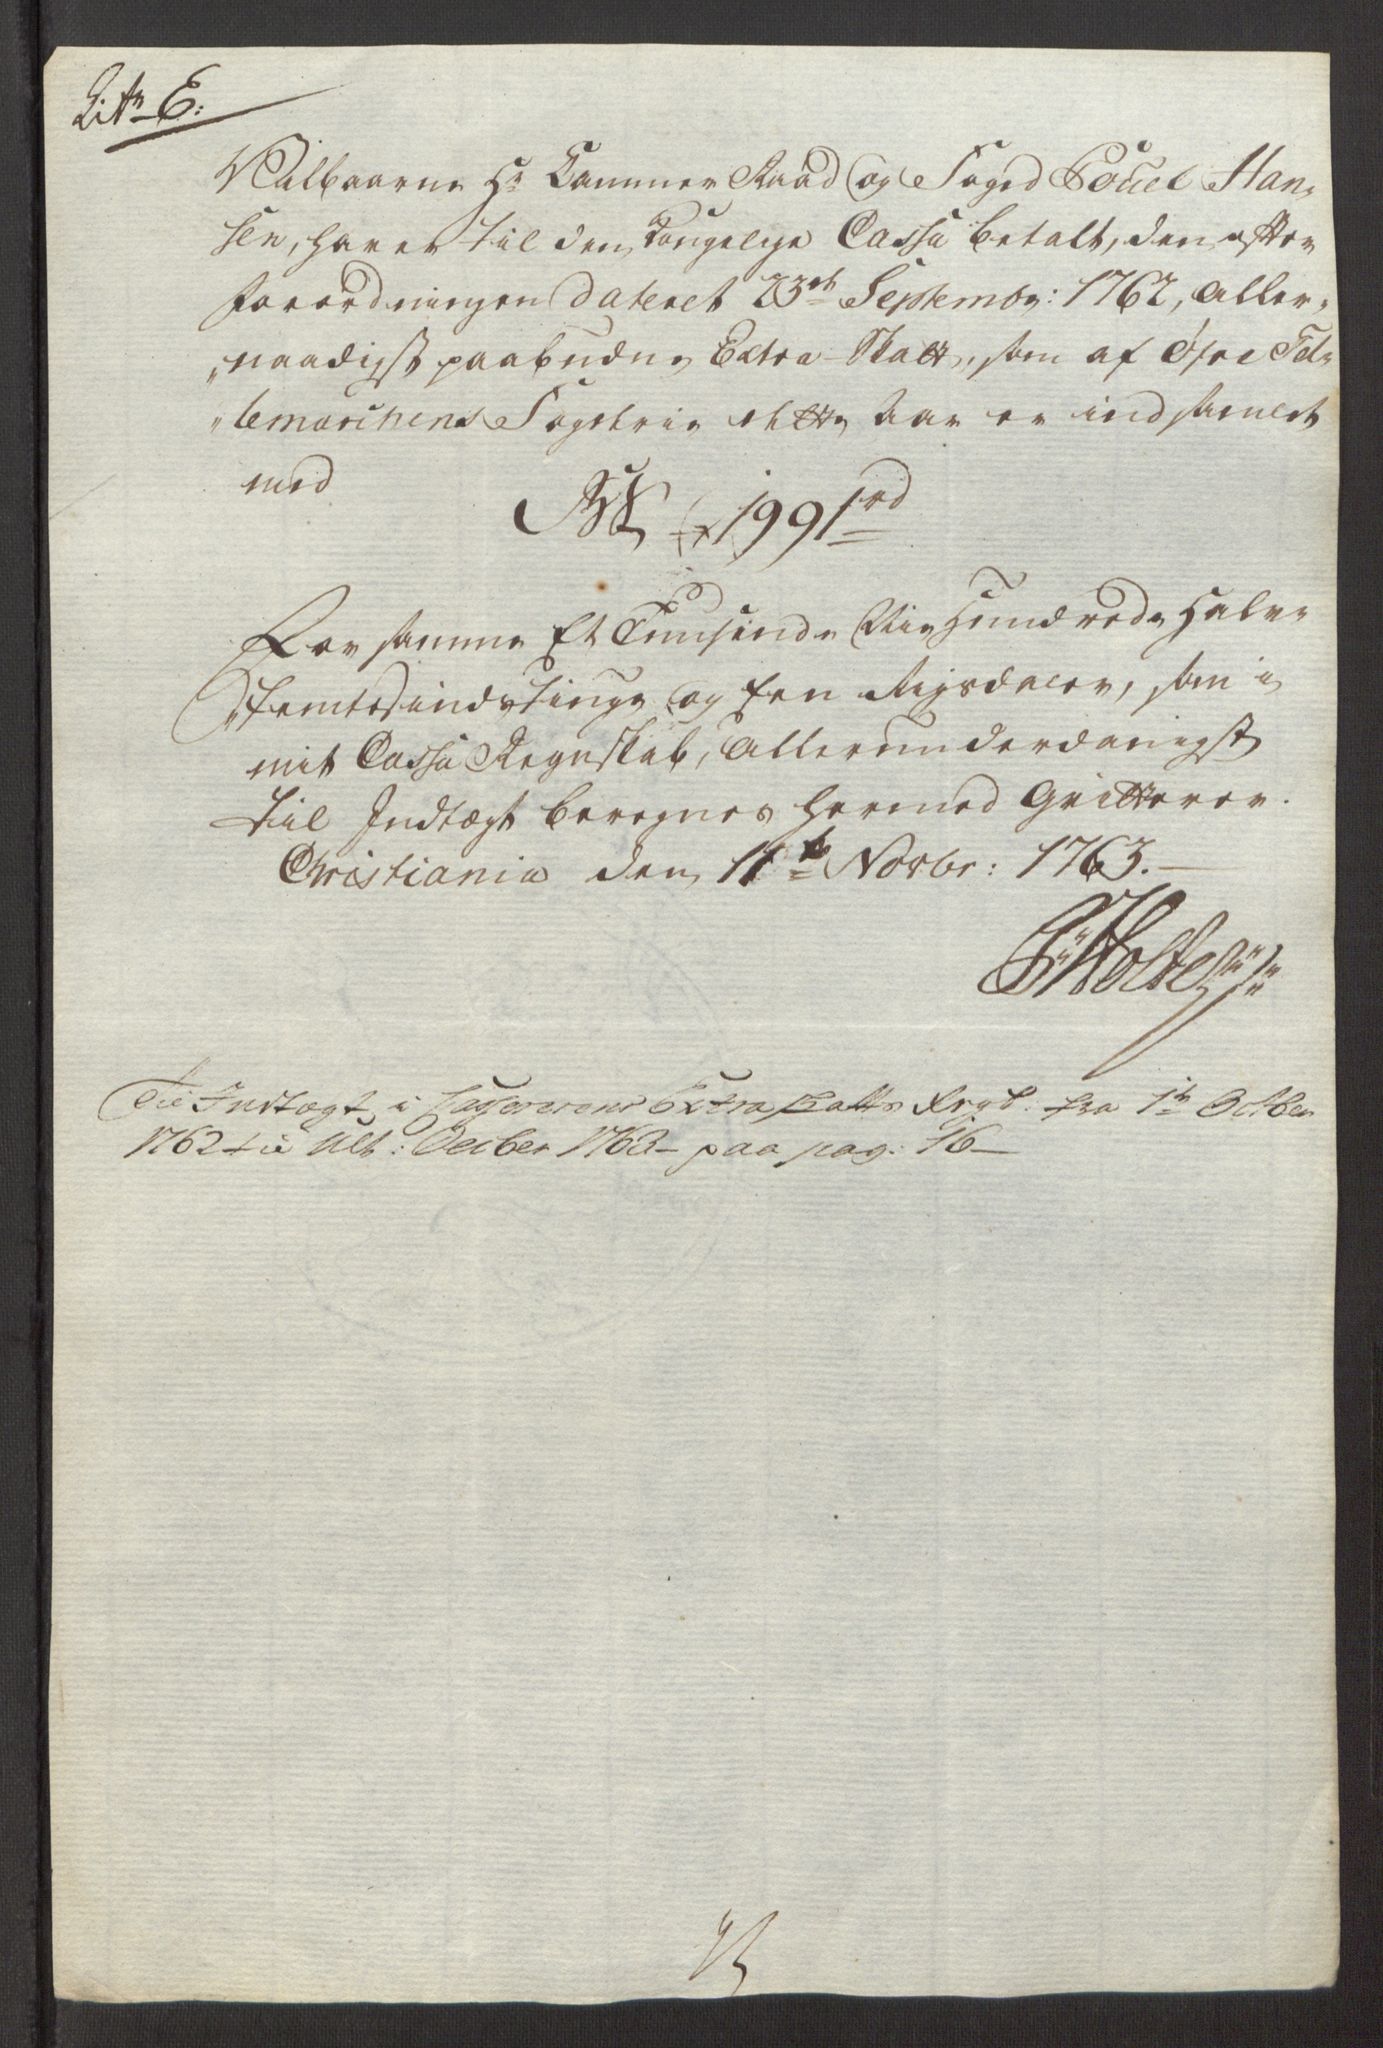 Litr E:
Velbaarne Hr Cammer Raad og Foged Pouel Han,
sen, haver til den Kongelige Cassa betalt, den efter
Forordningen dateret 23de Septembr: 1762, Aller,
naadigst paabudne Extra-Skatt, som af Øfre Tel,
lemarchens Fogderie dette Aar er indsamlet
med
1991 rd
For samme Et Tusinde Nie Hundrede Halv,
femtesindstiuge og Een Rigsdaler, som i
mit Cassa Regnskab, Allerunderdanigst
til Indtægt beregnes hermed Qvitterer.
Christiania den 11te Novbr: 1763.
Holte
Til Indtægt i Casserernes Extra Skatts Regsk: fra 1te Octbr
1762 til Ult: Decber 1763 - paa pag: 16 -